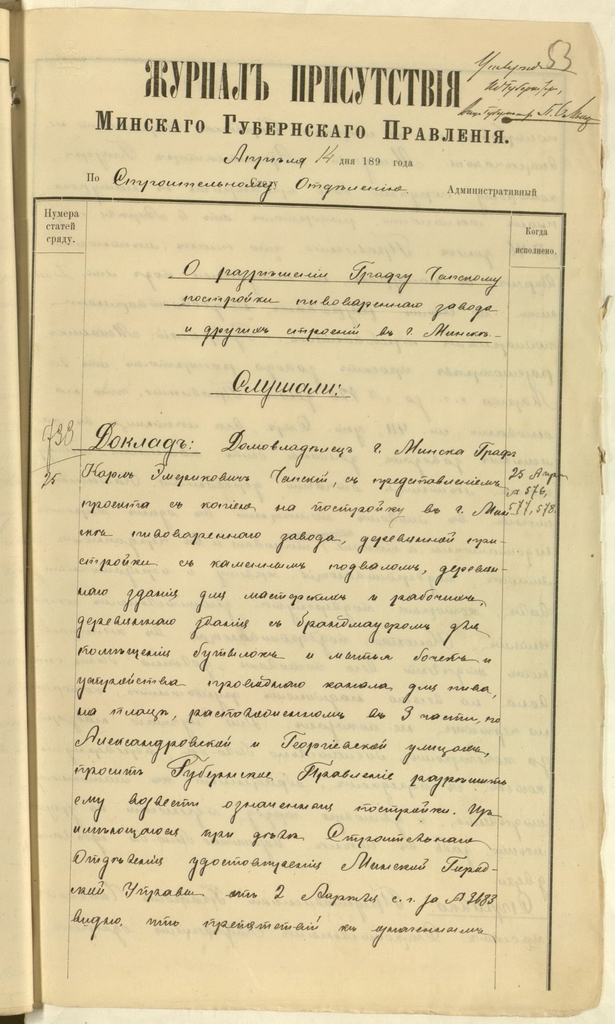 53
ЖУРНАЛЪ ПРИСУТСТВІЯ
МИНСКАГО ГУБЕРНСКАГО ПРАВЛЕНІЯ.
Апрѣля 14 дня 189 года
По Строительному Отдѣленію Административный
Нумера статей сряду.
Когда исполнено.
О разрѣшеніи Графу Чапскому
постройки пивовареннаго завода
и другихъ строеній въ г. Минскѣ
Слушали:
738
25
Докладъ: Домовладѣлецъ г. Минска Графъ
Карлъ Эмериковичъ Чапскій, съ представленіемъ
25 Апр
№ 576,
577, 578.
проекта съ копіею на постройку въ г. Мин
скѣ пивовареннаго завода, деревянной при-
стройки съ каменнымъ подваломъ, деревян-
наго зданія для мастерскихъ и рабочихъ,
деревяннаго зданія съ брандмауеромъ для
помѣщенія бутылокъ и мытья бочекъ и
устройства проводнаго канала для пива,
на плацѣ, расположенномъ въ 3 части, по
Александровской и Георгіевской улицамъ,
проситъ Губернское Правленіе разрѣшить
ему возвести означенныя постройки. Изъ
имѣющагося при дѣлѣ Строительнаго
Отдѣленія удостовѣренія Минской Город-
ской Управы отъ 2 Апрѣля с. г. за № 2683
видно, что препятствій къ означеннымъ